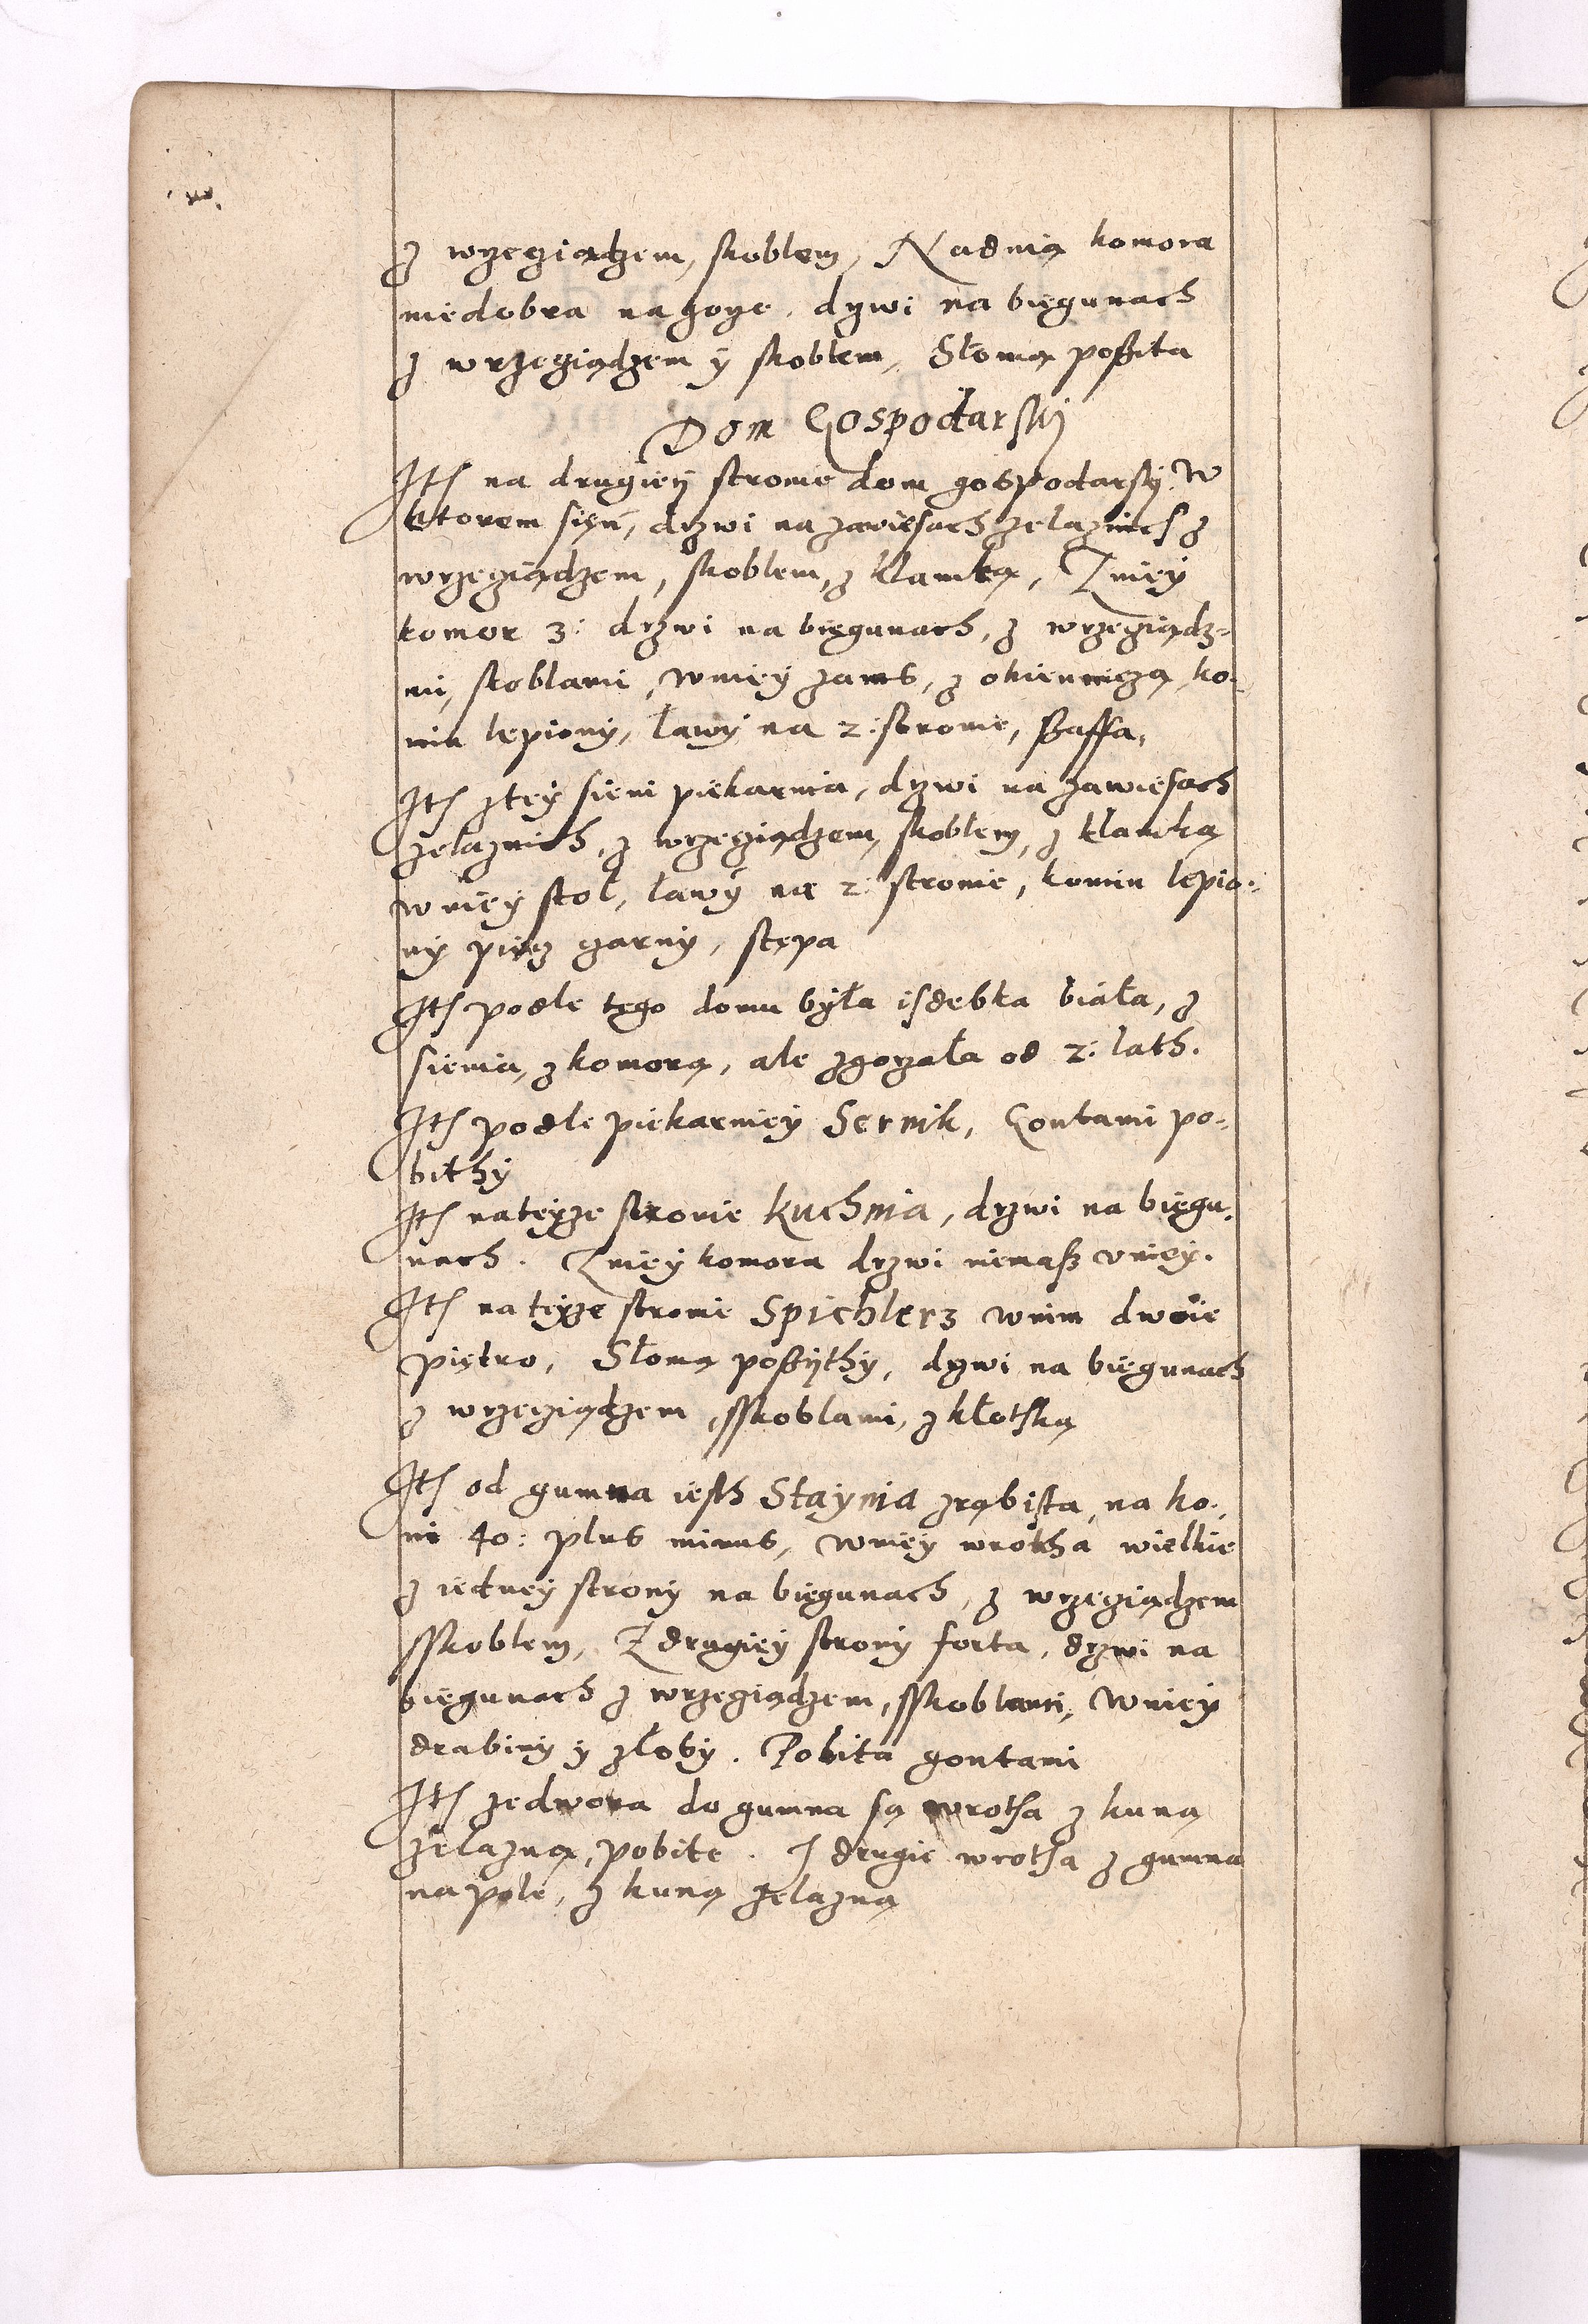 z wrzeciądzem, skoblem, Nadnią komora
niedobra nagorze. drzwi na biegunach
z wrzeciądzem y skoblem, Słomą poßita
Dom Gospodarskj
Ith na drugiey stronie dom gospodarsky. W
ktorem sień, drzwi na zawiesach zelaznich z
wrzeciądzem, skoblem, z klamką, Zniey
komor 3: drzwi na biegunach, z wrzeciądz=
mi, skoblami, wniey zams, z okienniczą, ko-
min lepiony, ławy na 2: stronie, ßaffa,
Ith ztey sieni piekarnia, drzwi na zawiesach
zelaznich, z wrzeciądzem, skoblem, z klamką
wniey stoł, ławy na 2: stronie, komin lepio=
ny piecz czarny, stępa
Ith podle tego domu była isdebka biała, z
sienią, z komorą, ale zgorzała od 2: lath.
Ith podle piekarniey Sernik, Gontami po=
bithy
Ith nateyze stronie Kuchnia, drzwi na biegu-
nach. Zniey komora drzwi niemaß vniey.
Ith na teyze stronie Spichlerz wnim dwoie
piętro, Słomą poßythy, drzwi na biegunach
z wrzeciądzem, sskoblami, z kłotką
Ith od gumna iesth Staynia zrąbista, na ko-
ni 40: plus minus, wniey wrotha wielkie
z iedney strony na biegunach, z wrzeciądzem
sskoblem, Z drugiey strony forta, drzwi na
biegunach z wrzeciądzem, sskoblami, wniey
drabiny y złoby. Pobita gontami
Ith zedwora do gumna są wrotha z kuną
zelazną, pobite. J drugie wrotha z gumna
na pole, z kuną zelazną